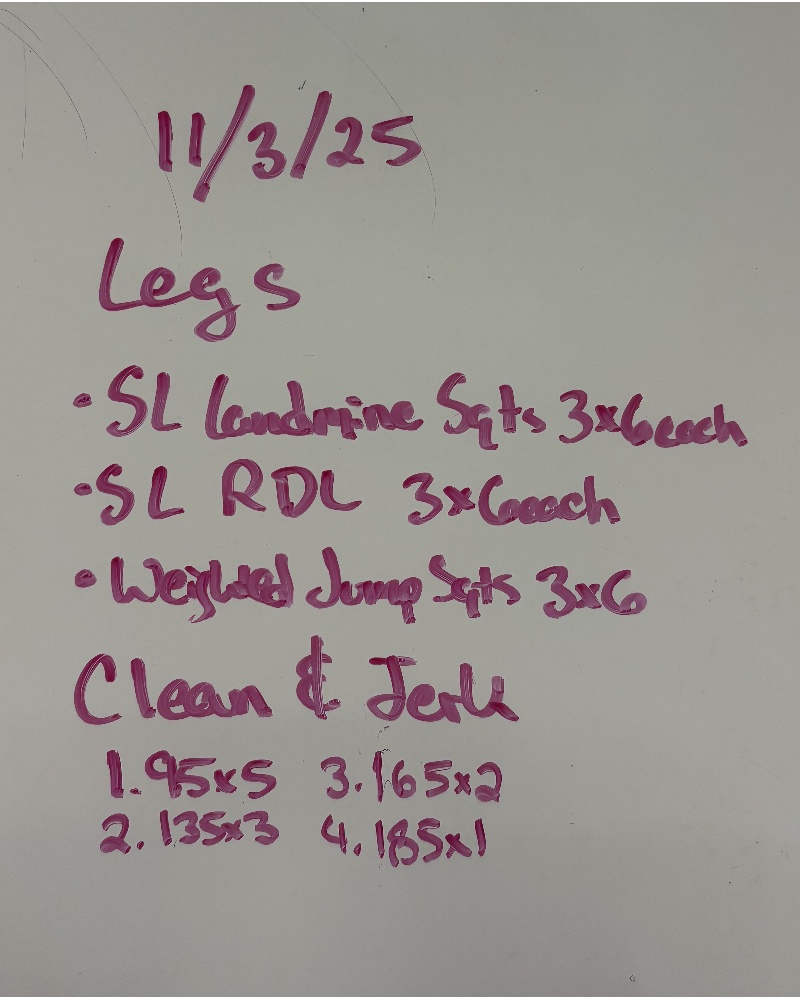 11/3/25
Legs
• SL Landmine Sqts 3x6each
• SL RDL 3x6each
• Weighted Jump Sqts 3x6
Clean & Jerk
1. 95x5 3. 165x2
2. 135x3 4. 185x1